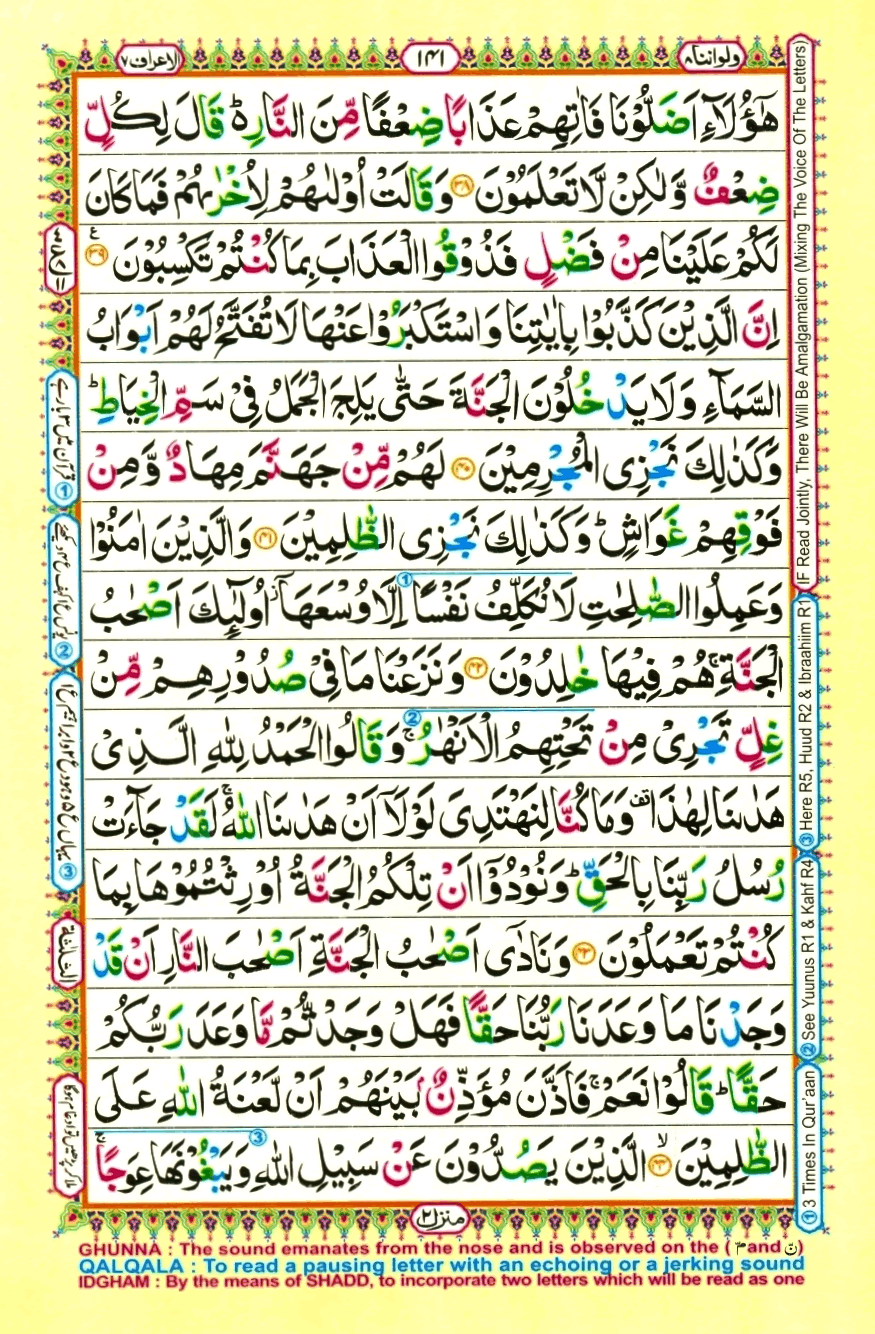 ولواننا ۸
۱۴۱
الاعراف ۷
هٰٓؤُلَآءِ اَضَلُّوْنَا فَاٰتِهِمْ عَذَابًا ضِعْفًا مِّنَ النَّارِ۬ؕ قَالَ لِكُلٍّ
ضِعْفٌ وَّلٰكِنْ لَّا تَعْلَمُوْنَ ﴿۳۸﴾ وَقَالَتْ اُوْلٰىهُمْ لِاُخْرٰىهُمْ فَمَا كَانَ
لَكُمْ عَلَيْنَا مِنْ فَضْلٍ فَذُوْقُوا الْعَذَابَ بِمَا كُنْتُمْ تَكْسِبُوْنَ ﴿۳۹﴾
اِنَّ الَّذِيْنَ كَذَّبُوْا بِاٰيٰتِنَا وَاسْتَكْبَرُوْا عَنْهَا لَا تُفَتَّحُ لَهُمْ اَبْوَابُ
السَّمَآءِ وَلَا يَدْخُلُوْنَ الْجَنَّةَ حَتّٰى يَلِجَ الْجَمَلُ فِيْ سَمِّ الْخِيَاطِ ؕ
وَكَذٰلِكَ نَجْزِى الْمُجْرِمِيْنَ ﴿۴۰﴾ لَهُمْ مِّنْ جَهَنَّمَ مِهَادٌ وَّمِنْ
فَوْقِهِمْ غَوَاشٍ ؕ وَكَذٰلِكَ نَجْزِى الظّٰلِمِيْنَ ﴿۴۱﴾ وَالَّذِيْنَ اٰمَنُوْا
وَعَمِلُوا الصّٰلِحٰتِ لَا نُكَلِّفُ نَفْسًا اِلَّا وُسْعَهَاۤ ز اُولٰٓئِكَ اَصْحٰبُ
الْجَنَّةِ ۚ هُمْ فِيْهَا خٰلِدُوْنَ ﴿۴۲﴾ وَنَزَعْنَا مَا فِيْ صُدُوْرِهِمْ مِّنْ
غِلٍّ تَجْرِيْ مِنْ تَحْتِهِمُ الْاَنْهٰرُ ۚ وَقَالُوا الْحَمْدُ لِلّٰهِ الَّذِيْ
هَدٰىنَا لِهٰذَا قف وَمَا كُنَّا لِنَهْتَدِيَ لَوْلَاۤ اَنْ هَدٰىنَا اللّٰهُ ۚ لَقَدْ جَآءَتْ
رُسُلُ رَبِّنَا بِالْحَقِّ ؕ وَنُوْدُوْۤا اَنْ تِلْكُمُ الْجَنَّةُ اُوْرِثْتُمُوْهَا بِمَا
كُنْتُمْ تَعْمَلُوْنَ ﴿۴۳﴾ وَنَادٰۤى اَصْحٰبُ الْجَنَّةِ اَصْحٰبَ النَّارِ اَنْ قَدْ
وَجَدْنَا مَا وَعَدَنَا رَبُّنَا حَقًّا فَهَلْ وَجَدْتُّمْ مَّا وَعَدَ رَبُّكُمْ
حَقًّا ؕ قَالُوْا نَعَمْ ۚ فَاَذَّنَ مُؤَذِّنٌۢ بَيْنَهُمْ اَنْ لَّعْنَةُ اللّٰهِ عَلَى
الظّٰلِمِيْنَ ﴿۴۴﴾ۙ الَّذِيْنَ يَصُدُّوْنَ عَنْ سَبِيْلِ اللّٰهِ وَيَبْغُوْنَهَا عِوَجًا ۚ
منزل ۲
IF Read Jointly, There Will Be Amalgamation (Mixing The Voice Of The Letters)
③ Here R5, Huud R2 & Ibraahiim R1
② See Yuunus R1 & Kahf R4
① 3 Times In Qur'aan
الثلثة
GHUNNA : The sound emanates from the nose and is observed on the ( مّ and نّ )
QALQALA : To read a pausing letter with an echoing or a jerking sound
IDGHAM : By the means of SHADD, to incorporate two letters which will be read as one